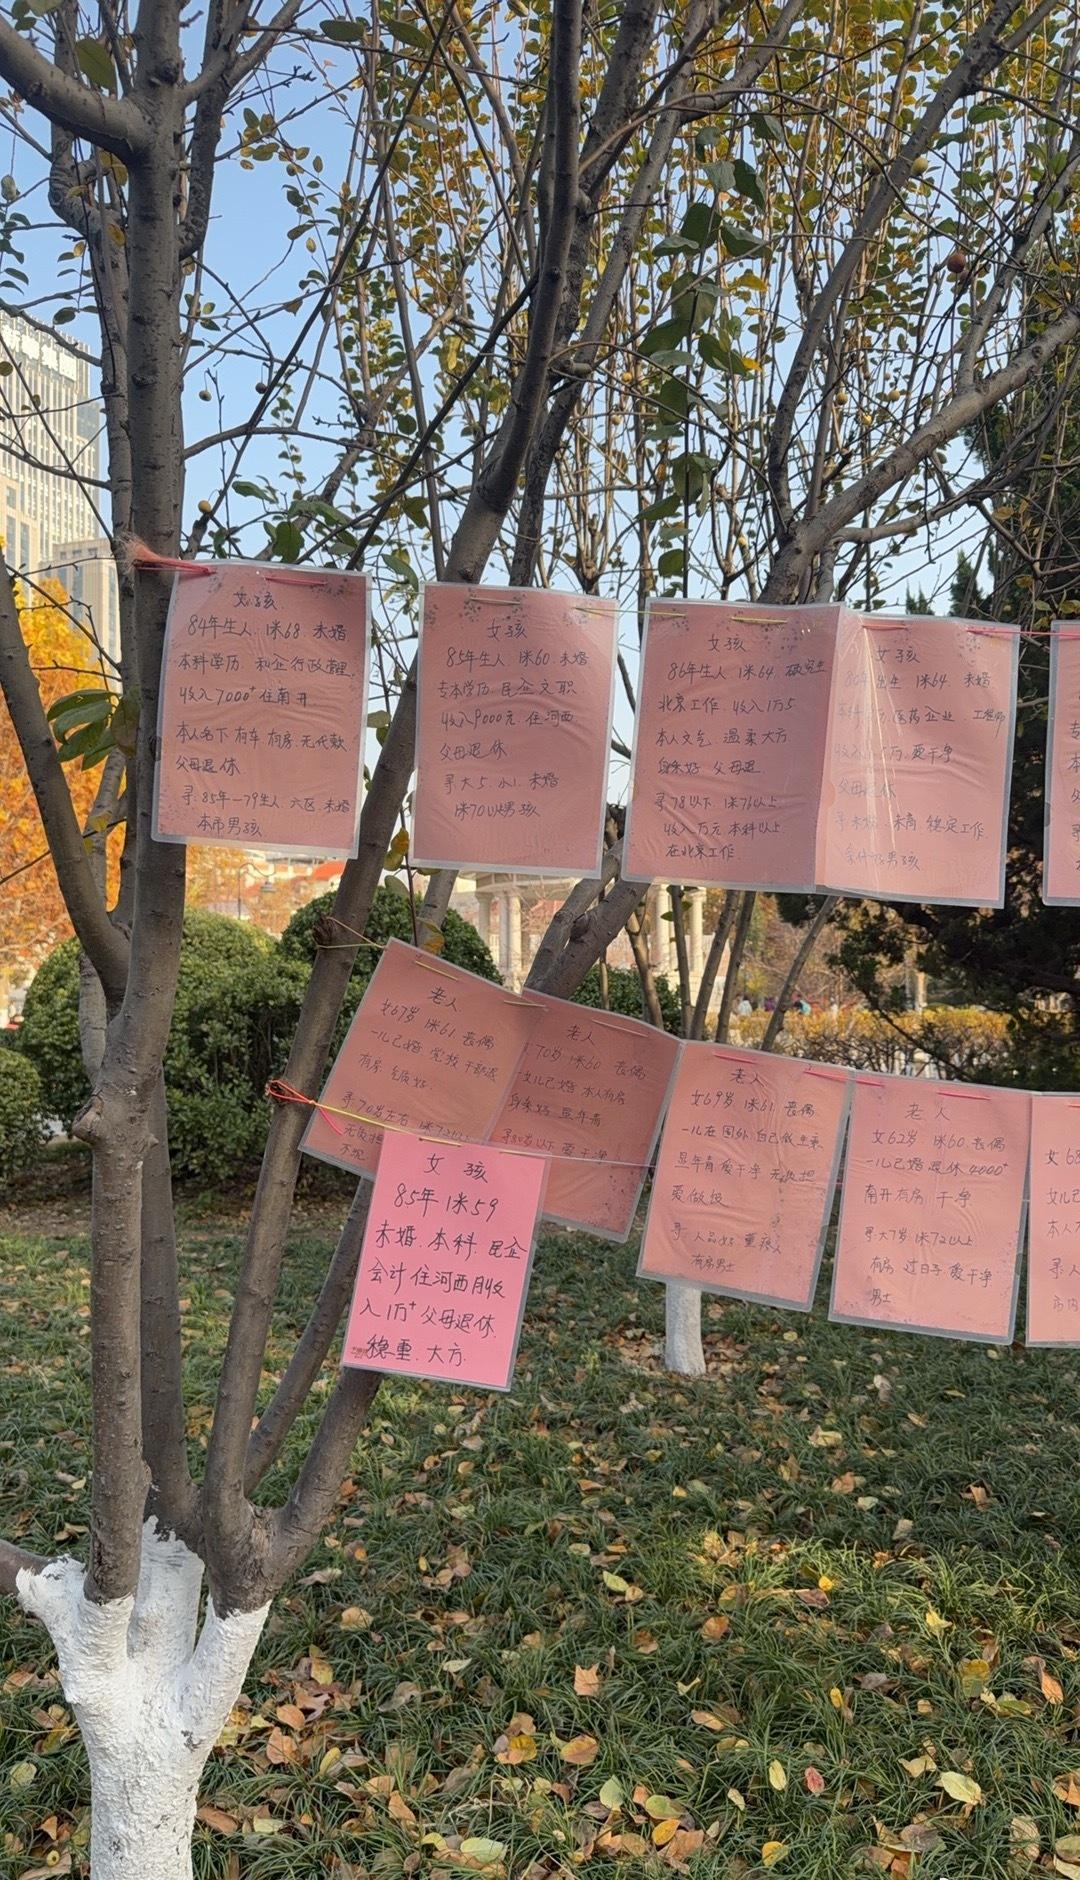 女孩
84年生人 1米68 未婚
本科学历 私企行政管理
收入7000+住南开
本人名下有车有房无代款
父母退休
寻:85年-79生人 六区 未婚
本市男孩
女孩
85年生人 1米60 未婚
专本学历 民企文职
收入9000元 住河西
父母退休
寻大5.小1.未婚
1米70以上男孩
女孩
86年生人 1米64 研究生
北京工作 收入1万5
本人文气 温柔大方
身体好 父母退
寻78以下 1米76以上
收入万元 本科以上
在北京工作
女孩
出生 1米64 未婚
医药企业 工程师
爱干净
父母退休
寻 稳定工作
男孩
老人
女67岁 1米61 丧偶
一儿已婚
有房
寻70岁左右 1米72以上
老人
70岁 1米60 丧偶
女儿已婚 本人有房
身体好 显年青
寻80岁以下 爱干净
老人
女69岁 1米61 丧偶
一儿在国外 自己
显年青爱干净 无负担
爱做饭
寻:人品好
有房男士
老人
女62岁 1米60 丧偶
一儿已婚 退休4000+
南开有房 干净
寻大7岁 1米72以上
有房 过日子 爱干净
男士
女68
女儿已
本人
寻:人
市内
女孩
85年 1米59
未婚.本科.民企
会计 住河西月收
入1万+父母退休.
稳重.大方.